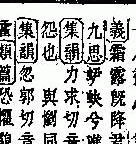 義霜露既降君
九思兮
集韻力求切音
怨也與劉同
集韻忽郭切音
類篇恐懼